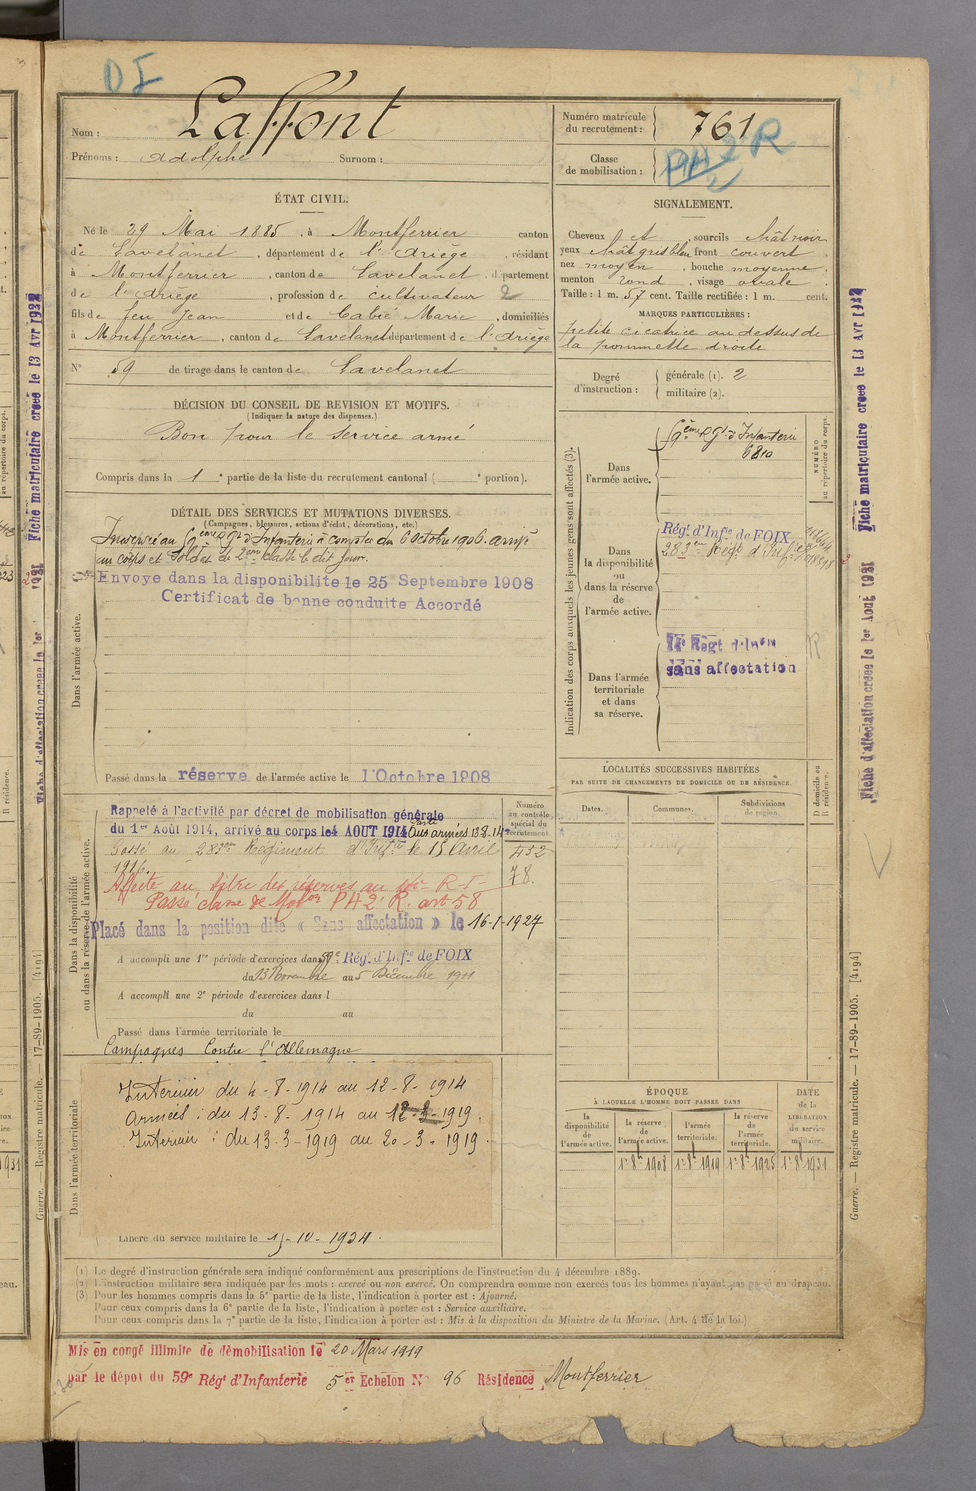 DI
Nom : Laffont
Prénoms : Adolphe Surnom :
Numéro matricule du recrutement : 761
Classe de mobilisation :
PA 2 R
ÉTAT CIVIL.
Né le 29 Mai 1885, à Montferrier canton
de Lavelanet, département de l'Ariège, résidant
à Montferrier, canton de Lavelanet, département
de l'Ariège, profession de cultivateur 2
fils de feu Jean et de Cabié Marie, domiciliés
à Montferrier, canton de Lavelanet département de l'Ariège
N° 59 de tirage dans le canton de Lavelanet
SIGNALEMENT.
Cheveux et, sourcils chât noir
yeux chât gris bleu front couvert
nez moyen, bouche moyenne,
menton rond, visage ovale.
Taille : 1 m. 57 cent. Taille rectifiée : 1 m. cent.
MARQUES PARTICULIÈRES :
petite cicatrice au dessus de
la pommette droite
Degré d'instruction : générale (1). 2
militaire (2).
DÉCISION DU CONSEIL DE REVISION ET MOTIFS.
(Indiquer la nature des dispenses.)
Bon pour le service armé
Compris dans la 1e partie de la liste du recrutement cantonal ( e portion).
DÉTAIL DES SERVICES ET MUTATIONS DIVERSES.
(Campagnes, blessures, actions d'éclat, décorations, etc.)
Incorporé au 59ème Rgt d'Infanterie à compter du 6 Octobre 1906. arrivé
au corps et Soldat de 2ème classe le dit jour.
Envoyé dans la disponibilité le 25 Septembre 1908
Certificat de bonne conduite Accordé
Dans l'armée active.
Passé dans la réserve de l'armée active le 1 Octobre 1908
Indication des corps auxquels les jeunes gens sont affectés (3).
NUMÉRO au répertoire du corps.
Dans l'armée active.
59ème Rgt d'Infanterie
6810
Dans la disponibilité ou dans la réserve de l'armée active.
Régt d'Infie de FOIX
283me Régt d'Inf
Dans l'armée territoriale et dans sa réserve.
Régt d'Infie
sans affectation
LOCALITÉS SUCCESSIVES HABITÉES
PAR SUITE DE CHANGEMENTS DE DOMICILE OU DE RÉSIDENCE.
Dates.
Communes.
Subdivisions de région.
D domicile ou R résidence.
Dans la disponibilité ou dans la réserve de l'armée active.
Numéro au contrôle spécial du recrutement.
432
78.
Rappelé à l'activité par décret de mobilisation générale
du 1er Août 1914, arrivé au corps le 4 AOUT 1914 Parti aux armées 13.8.14
Passé au 283me Régiment d'Infie le 15 Avril
1916.
Affecté au titre des réserves au R.I.
Passé classe de Mobon PA 2 R. art 58
Placé dans la position dite « Sans affectation » le 16-1-1927
A accompli une 1re période d'exercices dans 59e Régt d'Infie de FOIX
du 13 Novembre au 5 Décembre 1911
A accompli une 2e période d'exercices dans l
du au
Passé dans l'armée territoriale le
Campagnes Contre l'Allemagne
Dans l'armée territoriale
Intérieur du 4-8-1914 au 12-8-1914
Armées : du 13-8-1914 au 12-3-1919.
Intérieur : du 13-3-1919 au 20-3-1919.
Libéré du service militaire le 15-10-1934.
ÉPOQUE
À LAQUELLE L'HOMME DOIT PASSER DANS
DATE de la LIBÉRATION du service militaire.
la disponibilité de l'armée active.
la réserve de l'armée active.
l'armée territoriale.
la réserve de l'armée territoriale.
1 8bre 1908
1 8bre 1919
1 8bre 1925
1 8bre 1931
(1) Le degré d'instruction générale sera indiqué conformément aux prescriptions de l'instruction du 4 décembre 1889.
(2) L'instruction militaire sera indiquée par les mots : exercé ou non exercé. On comprendra comme non exercés tous les hommes n'ayant pas passé au drapeau.
(3) Pour les hommes compris dans la 5e partie de la liste, l'indication à porter est : Ajourné.
Pour ceux compris dans la 6e partie de la liste, l'indication à porter est : Service auxiliaire.
Pour ceux compris dans la 7e partie de la liste, l'indication à porter est : Mis à la disposition du Ministre de la Marine. (Art. 4 de la loi.)
Mis en congé illimité de démobilisation le 20 Mars 1919
par le dépôt du 59e Régt d'Infanterie 5er Echelon N° 96 Résidence Montferrier
Guerre. — Registre matricule. — 17-89-1905. [4194]
Fiche matriculaire créée le 13 Avr 1922
Fiche d'affectation créée le 1er Août 1921
Guerre. — Registre matricule. — 17-89-1905. [4194]
Fiche matriculaire créée le 13 Avr 1922